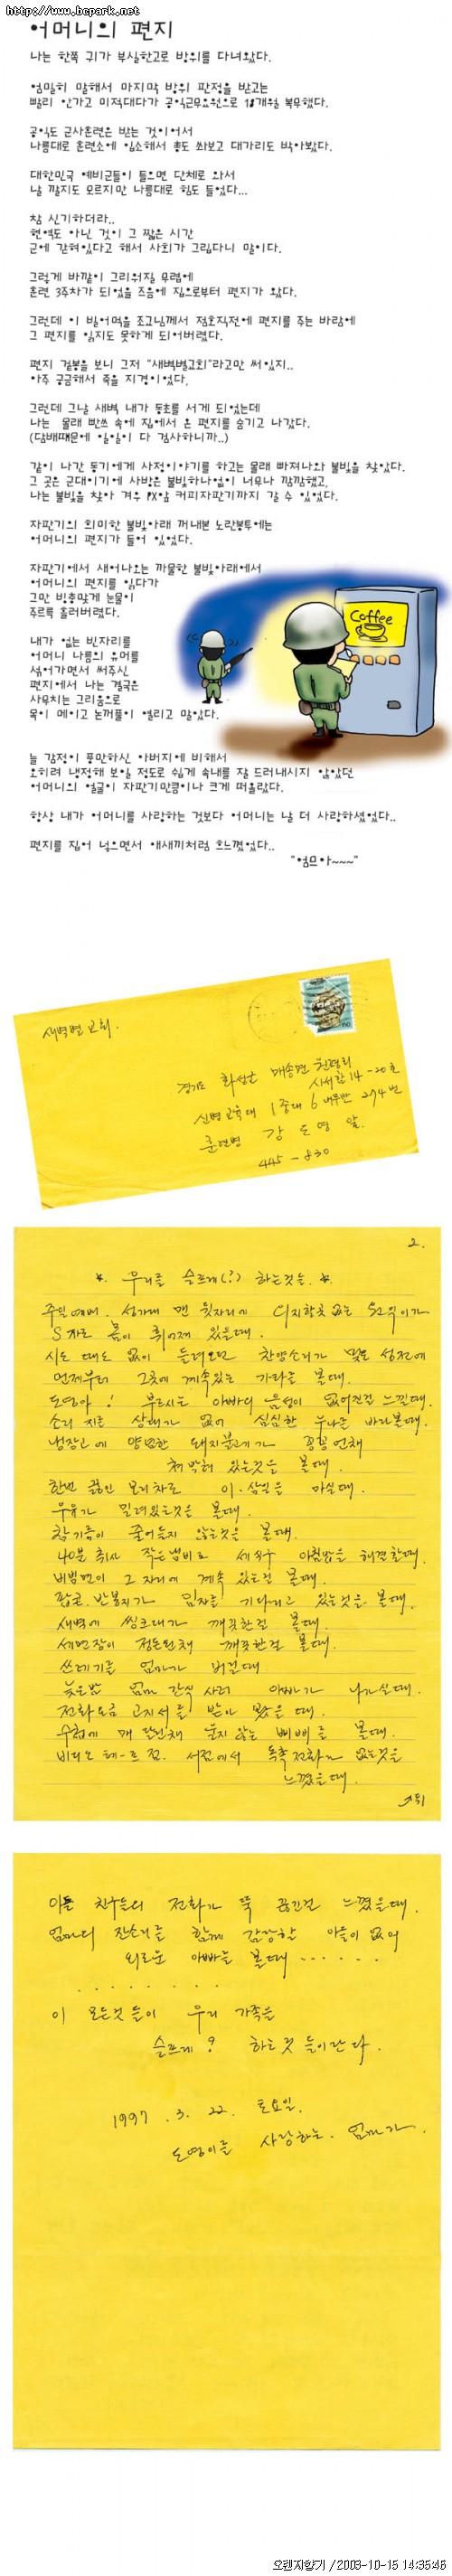 http://www.bcpark.net
어머니의 편지
나는 한쪽 귀가 부실한고로 방위를 다녀왔다.
엄밀히 말해서 마지막 방위 판정을 받고는
빨리 안가고 미적대다가 공익근무요원으로 18개월 복무했다.
공익도 군사훈련은 받는 것이어서
나름대로 훈련소에 입소해서 총도 쏴보고 대가리도 박아봤다.
대한민국 예비군들이 들으면 단체로 와서
날 깔지도 모르지만 나름대로 힘도 들었다...
참 신기하더라..
현역도 아닌 것이 그 짧은 시간
군에 갇혀있다고 해서 사회가 그립다니 말이다.
그렇게 바깥이 그리워질 무렵에
훈련 3주차가 되었을 즈음에 집으로부터 편지가 왔다.
그런데 이 빌어먹을 조교님께서 점호직전에 편지를 주는 바람에
그 편지를 읽지도 못하게 되어버렸다.
편지 겉봉을 보니 그저 "새벽별교회"라고만 써있지..
아주 궁금해서 죽을 지경이었다.
그런데 그날 새벽 내가 동초를 서게 되었는데
나는 몰래 빤쓰 속에 집에서 온 편지를 숨기고 나갔다.
(담배때문에 일일이 다 검사하니까..)
같이 나간 동기에게 사정이야기를 하고는 몰래 빠져나와 불빛을 찾았다.
그 곳은 군대이기에 사방은 불빛하나없이 너무나 깜깜했고,
나는 불빛을 찾아 겨우 PX앞 커피자판기까지 갈 수 있었다.
자판기의 희미한 불빛아래 꺼내본 노란봉투에는
어머니의 편지가 들어 있었다.
자판기에서 새어나오는 까물한 불빛아래에서
어머니의 편지를 읽다가
그만 빙충맞게 눈물이
주르륵 흘러버렸다.
Coffee
내가 없는 빈자리를
어머니 나름의 유머를
섞어가면서 써주신
편지에서 나는 결국은
사무치는 그리움으로
목이 메이고 눈꺼풀이 떨리고 말았다.
늘 감정이 풍만하신 아버지에 비해서
오히려 냉정해 보일 정도로 쉽게 속내를 잘 드러내시지 않았던
어머니의 얼굴이 자판기만큼이나 크게 떠올랐다.
항상 내가 어머니를 사랑하는 것보다 어머니는 날 더 사랑하셨었다..
편지를 집어 넣으면서 개새끼처럼 흐느꼈었다..
"엄므아~~~"
새벽별교회.
경기도 화성군 매송면 원평리
사서함 14-20호
신병교육대 1중대 6내무반 274번
훈련병 강도영 앞.
445-830
2.
*. 우리를 슬프게(?) 하는것들. *
주일예배. 성가대 맨 윗자리에
S자로 몸이 휘어져 있을때.
시도 때도 없이 들려오던 찬양소리가 멎은 성전에
먼저부터 그곳에 계속있는 기타를 볼때.
도영아! 부르시는 아빠의 음성이 없어진걸 느낄때.
소리 지를 상대가 없어 심심한 누나를 바라볼때.
냉장고에 양념한 돼지불고기가 꽁꽁 언채
쳐박혀 있는것을 볼때.
한번 끓인 보리차로 이.삼일을 마실때.
우유가 밀려있는것을 볼때.
참기름이 줄어들지 않는것을 볼때.
40분 취사 작은냄비로 세식구 아침밥을 해결할때.
비빔면이 그 자리에 계속 있는걸 볼때.
팝콘.반봉지가 임자를 기다리고 있는것을 볼때.
새벽에 씽크대가 깨끗한걸 볼때.
세면장이 정돈된채 깨끗한걸 볼때.
쓰레기를 엄마가 버릴때.
늦은밤 엄마 간식 사러 아빠가 나가실때.
전화요금 고지서를 받아 봤을때.
수첩에 매달린채 울지 않는 삐삐를 볼때.
비디오 테-프 점. 서점에서 독촉전화가 없는것을
느꼈을때.
↗뒤
아들 친구들의 전화가 뚝 끊긴걸 느꼈을때.
엄마의 잔소리를 함께 감당할 아들이 없어
외로운 아빠를 볼때 ......
........
이 모든것들이 우리 가족을
슬프게? 하는것들이란다.
1997. 3. 22. 토요일.
도영이를 사랑하는. 엄마가.
오렌지향기 / 2003-10-15 14:35:46